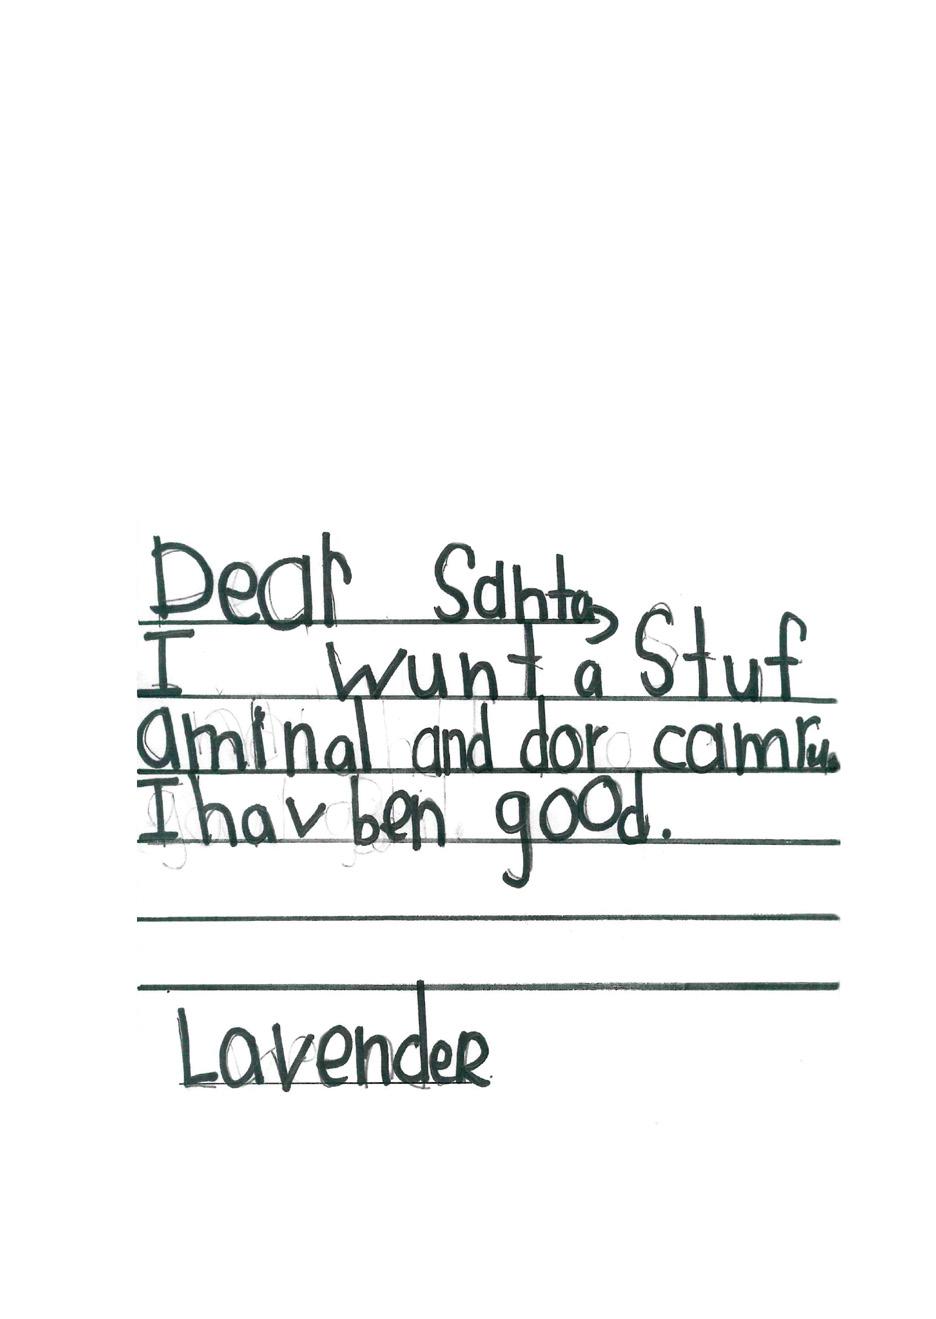 Dear Santa,
I wunt a Stuf
aminal and dor camru.
I hav ben good.
LavendeR